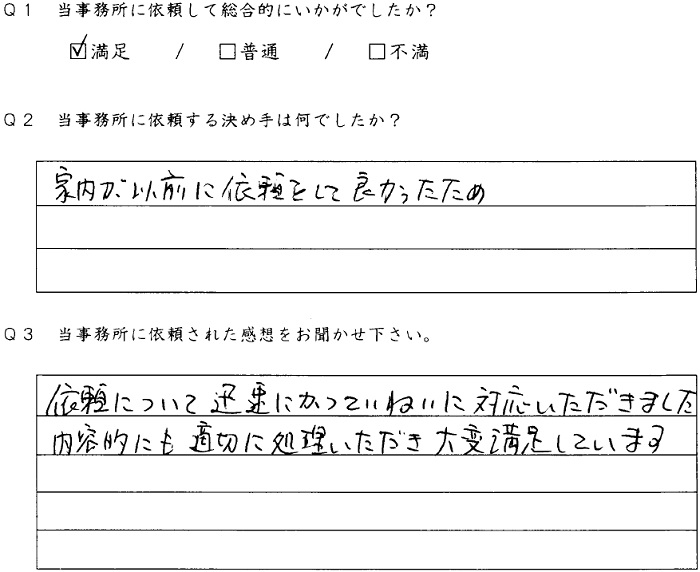 Q1 当事務所に依頼して総合的にいかがでしたか?
☑満足 / □普通 / □不満
Q2 当事務所に依頼する決め手は何でしたか?
家内が以前に依頼をして良かったため
Q3 当事務所に依頼された感想をお聞かせ下さい。
依頼について迅速にかつていねいに対応いただきました
内容的にも適切に処理いただき大変満足しています